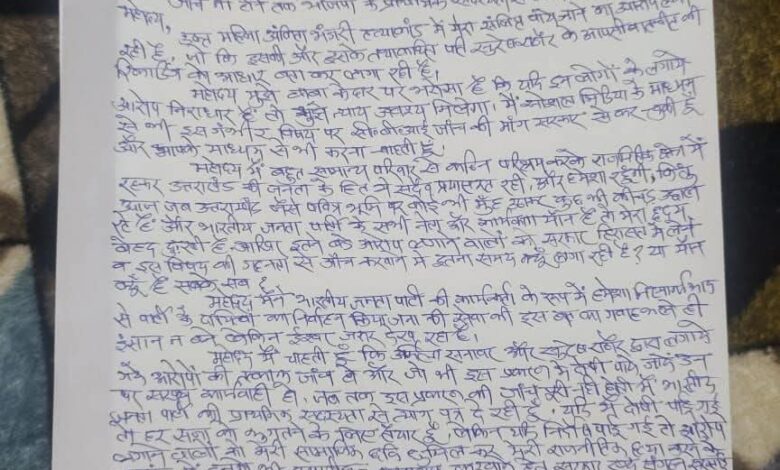 जाँच ना होने तक भाजपा के प्राथमिक
महोदय,
उक्त महिला अंकिता भंडारी हत्याकांड में मेरा संलिप्त होने का
रही है, जो कि इसकी और इसके तथाकथित पति सुरेश राठौर के आपसी बातचीत की
रिकार्डिंग को आधार बता कर लगा रही है।
महोदय मुझे बाबा केदार पर भरोसा है कि यदि इन लोगों के लगाये
आरोप निराधार है तो मुझे न्याय अवश्य मिलेगा। मैं सोशल मिडिया के माध्यम
से भी इस गंभीर विषय पर सी०बी०आई जाँच की माँग सरकार से कर चुकी हूँ
और आपके माध्यम से भी करना चाहती हूँ।
महोदय मैं बहुत सामान्य परिवार से कठिन परिश्रम करके राजनितिक क्षेत्र में
रहकर उत्तराखंड की जनता के हित में सदैव प्रयासरत रही, और हमेशा रहूँगी, किन्तु
आज जब उत्तराखण्ड जैसे पवित्र भूमि पर कोई भी मुँह उठाकर कुछ भी कीचड़ उछाल
रहे हैं और भारतीय जनता पार्टी के सभी नेता और कार्यकर्ता मौन है तो मेरा हृदय
बेहद दुःखी है, आखिर इतने बड़े आरोप लगाने वालों को सरकार हिरासत में लेने
व इस विषय की गहनता से जाँच करवाने में इतना समय क्यूँ लगा रही है? या मौन
क्यूँ है सबके सब।
महोदय मैंने भारतीय जनता पार्टी की कार्यकर्ता के रूप में हमेशा निस्वार्थ भाव
से पार्टी के दायित्वों का निर्वहन किया, जनता की सेवा की इस बात का गवाह कोई भी
इंसान न बने लेकिन ईश्वर जरूर देख रहा है।
महोदय मैं चाहती हूँ कि उर्मिला सनावर और सुरेश राठौर द्वारा लगाये
गये आरोपों की तत्काल जाँच हो और जो भी इस प्रकरण में दोषी पाये जाये उन
पर सख्त कार्यवाही हो, जब तक इस प्रकरण की जाँच पूरी नहीं होती मैं भारतीय
जनता पार्टी की प्राथमिक सदस्यता से त्याग पत्र दे रही हूँ। यदि मैं दोषी पाई गई
तो हर सजा को भुगतने के लिए तैयार हूँ, लेकिन यदि निर्दोष पाई गई तो आरोप
लगाने वालों का मेरी सामाजिक छवि धूमिल कर मेरी राजनितिक हत्या करने के